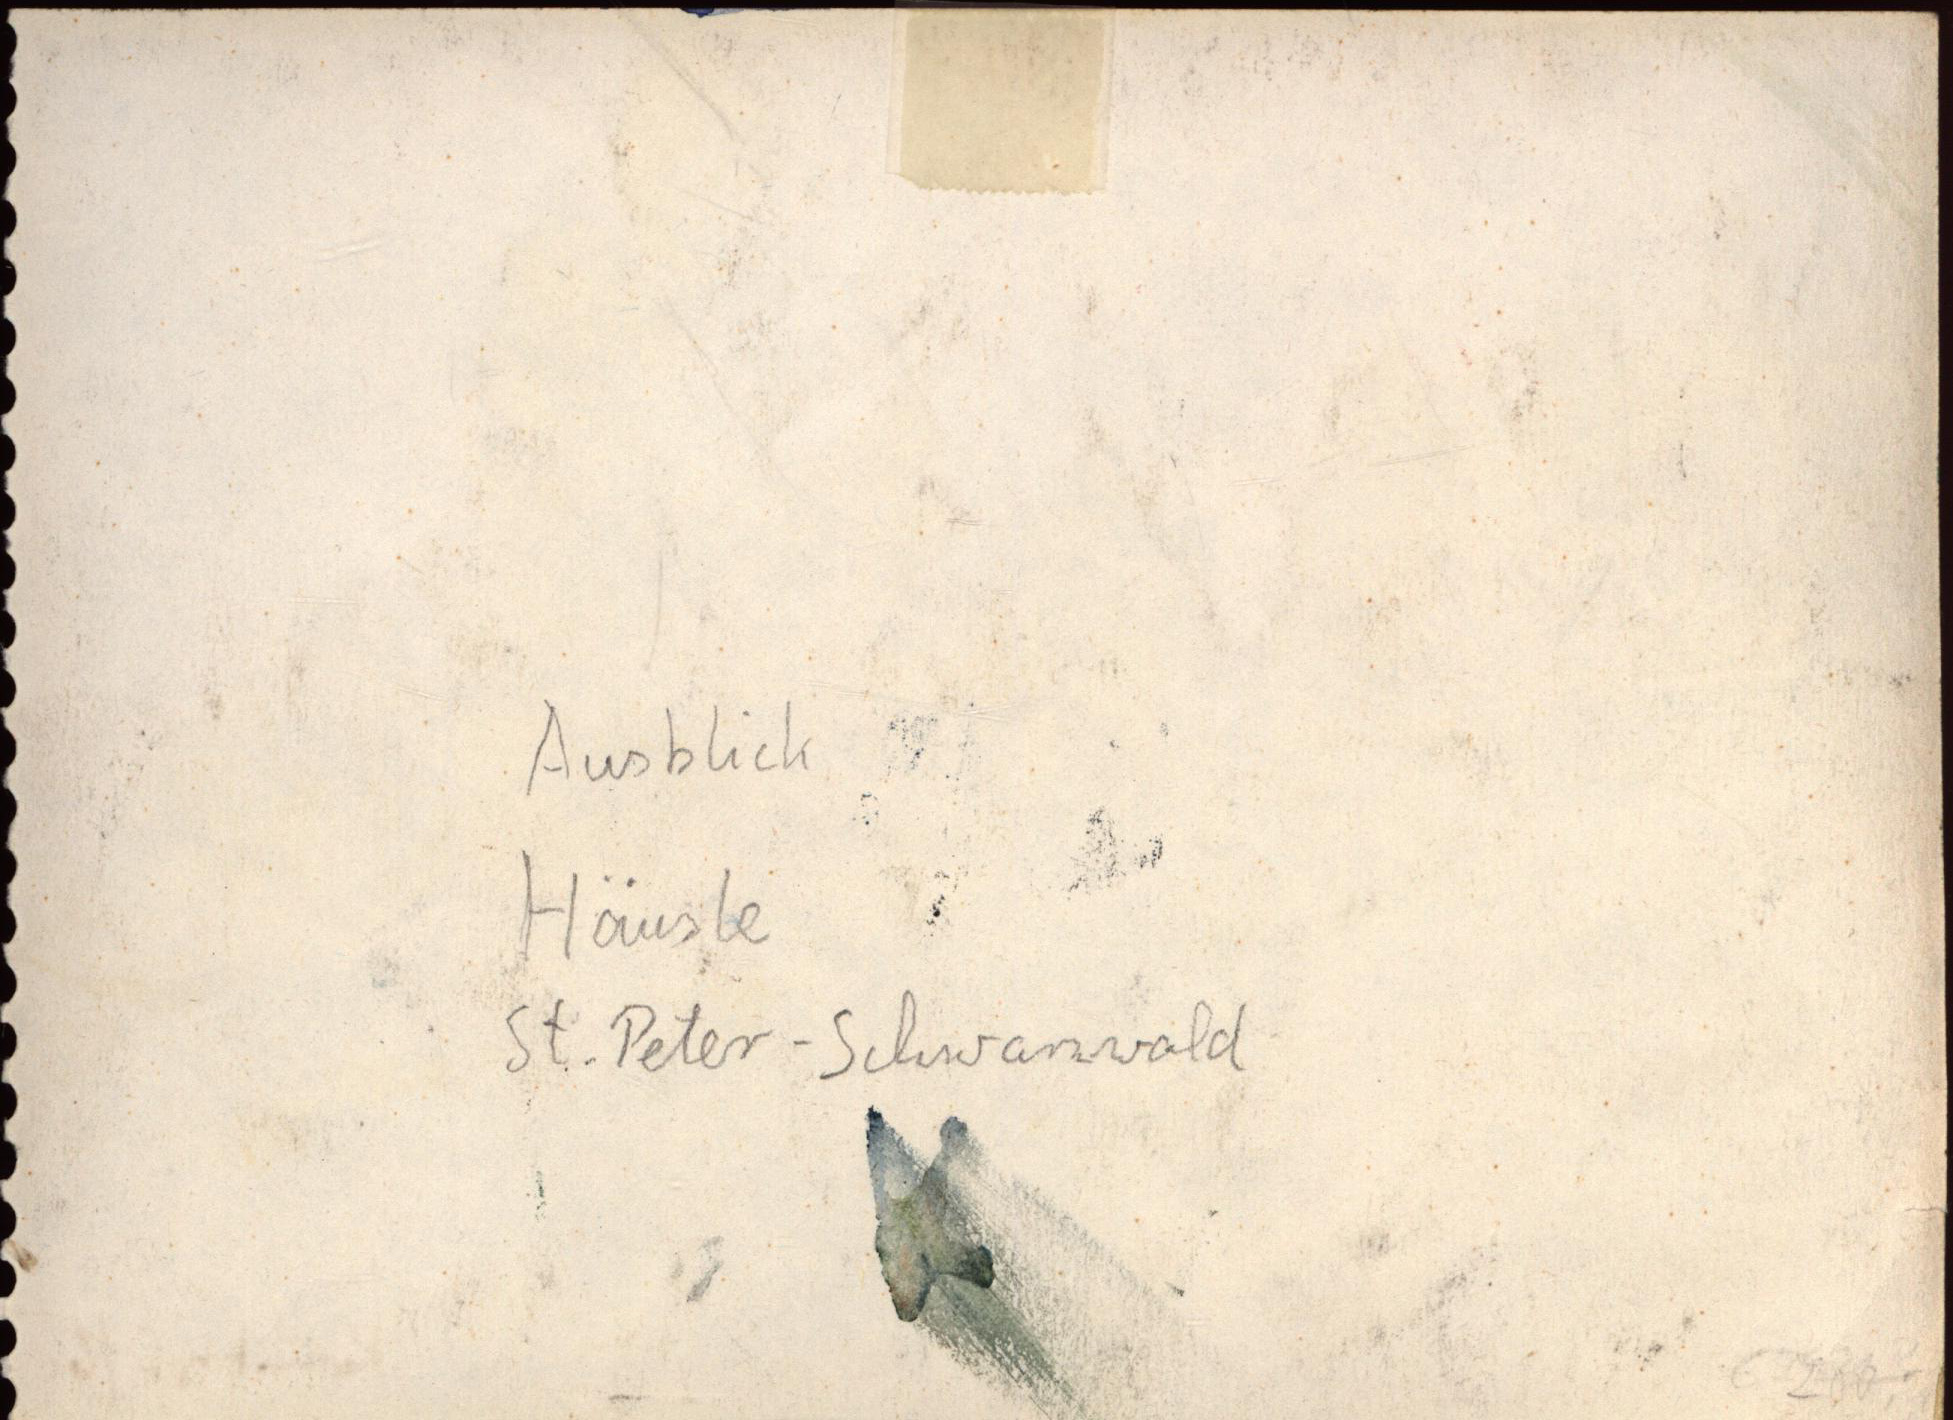 Ausblick
Häusle
St. Peter - Schwarzwald